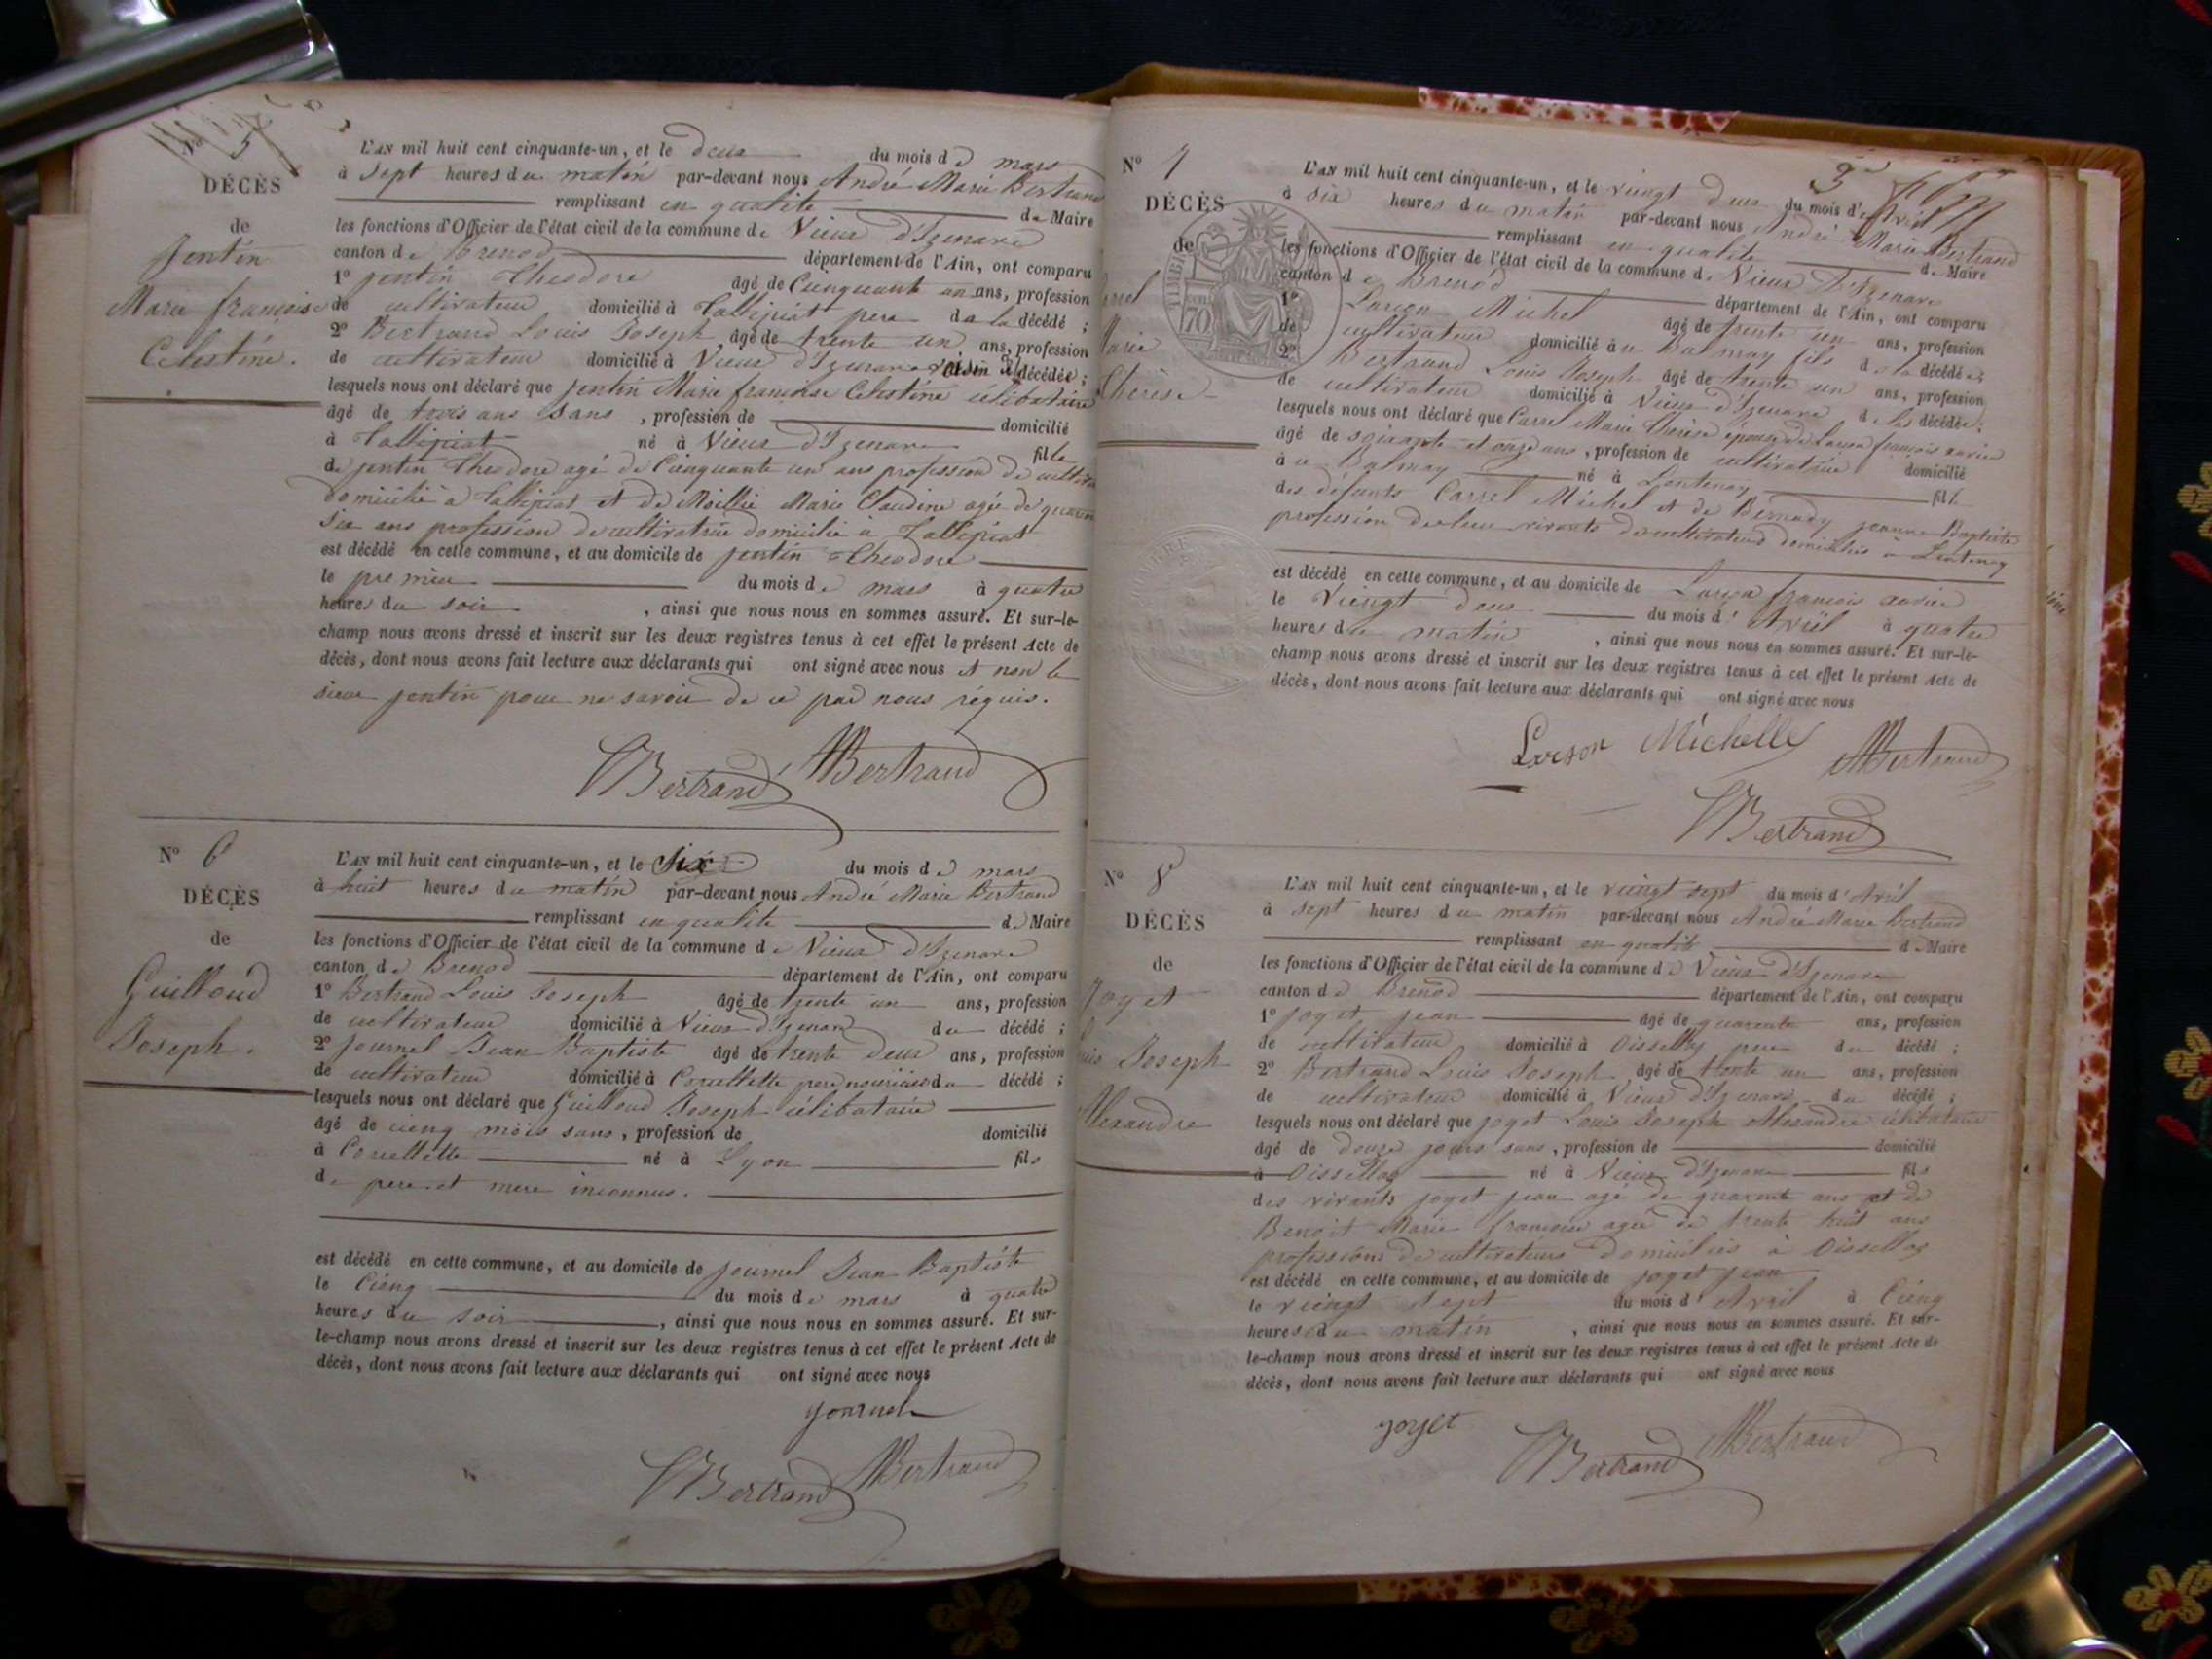 N° 5
DÉCÈS
de
Jentin
Marie françoise
Celestine.
L'AN mil huit cent cinquante-un, et le deux du mois de mars
à Sept heures du matin par-devant nous André Marie Bertrand
remplissant en qualité de Maire
les fonctions d'Officier de l'état civil de la commune de Vieux d'Izenave
canton de Brenod département de l'Ain, ont comparu
1° jentin Theodore âgé de Cinquante un ans, profession
de cultivateur domicilié à Tallipiat pere de la décédé ;
2° Bertrand Louis Joseph âgé de trente un ans, profession
de cultivateur domicilié à Vieux d'Izenave voisin décédée ;
lesquels nous ont déclaré que jentin Marie francoise Celestine célibataire
âgé de trois ans sans , profession de domicilié
à Tallipiat né à Vieux d'Izenave fille
de jentin Theodore agé de Cinquante un ans profession de
domicilié à Tallipiat et de Moillie Marie Claudine agée de
six ans profession de cultivatrice domicilié à Tallipiat
est décédé en cette commune, et au domicile de jentin Theodore
le premier du mois de mars à quatre
heures du soir , ainsi que nous nous en sommes assuré. Et sur-le-
champ nous avons dressé et inscrit sur les deux registres tenus à cet effet le présent Acte de
décès, dont nous avons fait lecture aux déclarants qui ont signé avec nous et non le
sieur jentin pour ne savoir de ce par nous réquis.
Bertrand AMBertrand
N° 6
DÉCÈS
de
Guilloud
Joseph.
L'AN mil huit cent cinquante-un, et le Six du mois de mars
à huit heures du matin par-devant nous André Marie Bertrand
remplissant en qualité de Maire
les fonctions d'Officier de l'état civil de la commune de Vieux d'Izenave
canton de Brenod département de l'Ain, ont comparu
1° Bertrand Louis Joseph âgé de trente un ans, profession
de cultivateur domicilié à Vieux d'Izenave du décédé ;
2° journel Jean Baptiste âgé de trente deux ans, profession
de cultivateur domicilié à Corcellette pere nouricier du décédé ;
lesquels nous ont déclaré que Guilloud Joseph célibataire
âgé de cienq mois sans , profession de domicilié
à Corcellette né à Lyon fils
de pere et mere inconnus.
est décédé en cette commune, et au domicile de journel Jean Baptiste
le Cienq du mois de mars à quatre
heures du soir , ainsi que nous nous en sommes assuré. Et sur-
le-champ nous avons dressé et inscrit sur les deux registres tenus à cet effet le présent Acte de
décès, dont nous avons fait lecture aux déclarants qui ont signé avec nous
Journel
Bertrand AMBertrand
3
N° 7
DÉCÈS
de
Marie
Therèse
TIMBRE
70
L'AN mil huit cent cinquante-un, et le vingt deux du mois d'Avril
à six heures du matin par-devant nous André Marie Bertrand
remplissant en qualité de Maire
les fonctions d'Officier de l'état civil de la commune de Vieux d'Izenave
canton de Brenod département de l'Ain, ont comparu
1° Larson Michel âgé de trente un ans, profession
de cultivateur domicilié à u Balmay fils de la décédée
2° Bertrand Louis Joseph âgé de trente un ans, profession
de cultivateur domicilié à Vieux d'Izenave de la décédée ;
lesquels nous ont déclaré que Carrel Marie Therèse épouse de Larson francois xavier
âgé de soixante et onze ans , profession de cultivatrice domicilié
à u Balmay né à Lantenay fille
des défunts Carrel Michel et de Bernady jeanne Baptiste
profession de leur vivants de cultivateurs domiciliés à Lantenay
est décédé en cette commune, et au domicile de Larson francois xavier
le vingt deux du mois d'Avril à quatre
heures du matin , ainsi que nous nous en sommes assuré. Et sur-le-
champ nous avons dressé et inscrit sur les deux registres tenus à cet effet le présent Acte de
décès, dont nous avons fait lecture aux déclarants qui ont signé avec nous
Larson Michelle AMBertrand
Bertrand
N° 8
DÉCÈS
de
Joyet
Joseph
Alexandre
L'AN mil huit cent cinquante-un, et le vingt sept du mois d'Avril
à sept heures du matin par-devant nous André Marie Bertrand
remplissant en qualité de Maire
les fonctions d'Officier de l'état civil de la commune de Vieux d'Izenave
canton de Brenod département de l'Ain, ont comparu
1° joyet jean âgé de quarente ans, profession
de cultivateur domicilié à Oisselaz pere du décédé ;
2° Bertrand Louis Joseph âgé de trente un ans, profession
de cultivateur domicilié à Vieux d'Izenave du décédé ;
lesquels nous ont déclaré que joyet Louis Joseph Alexandre célibataire
âgé de douze jours sans , profession de domicilié
à Oisselaz né à Vieux d'Izenave fils
des vivants joyet jean agé de quarente ans et de
Benoit Marie francoise agée de trente huit ans
professions de cultivateurs domiciliés à Oisselaz
est décédé en cette commune, et au domicile de joyet jean
le vingt sept du mois d'Avril à Cienq
heures du matin , ainsi que nous nous en sommes assuré. Et sur-
le-champ nous avons dressé et inscrit sur les deux registres tenus à cet effet le présent Acte de
décès, dont nous avons fait lecture aux déclarants qui ont signé avec nous
joyet
Bertrand AMBertrand